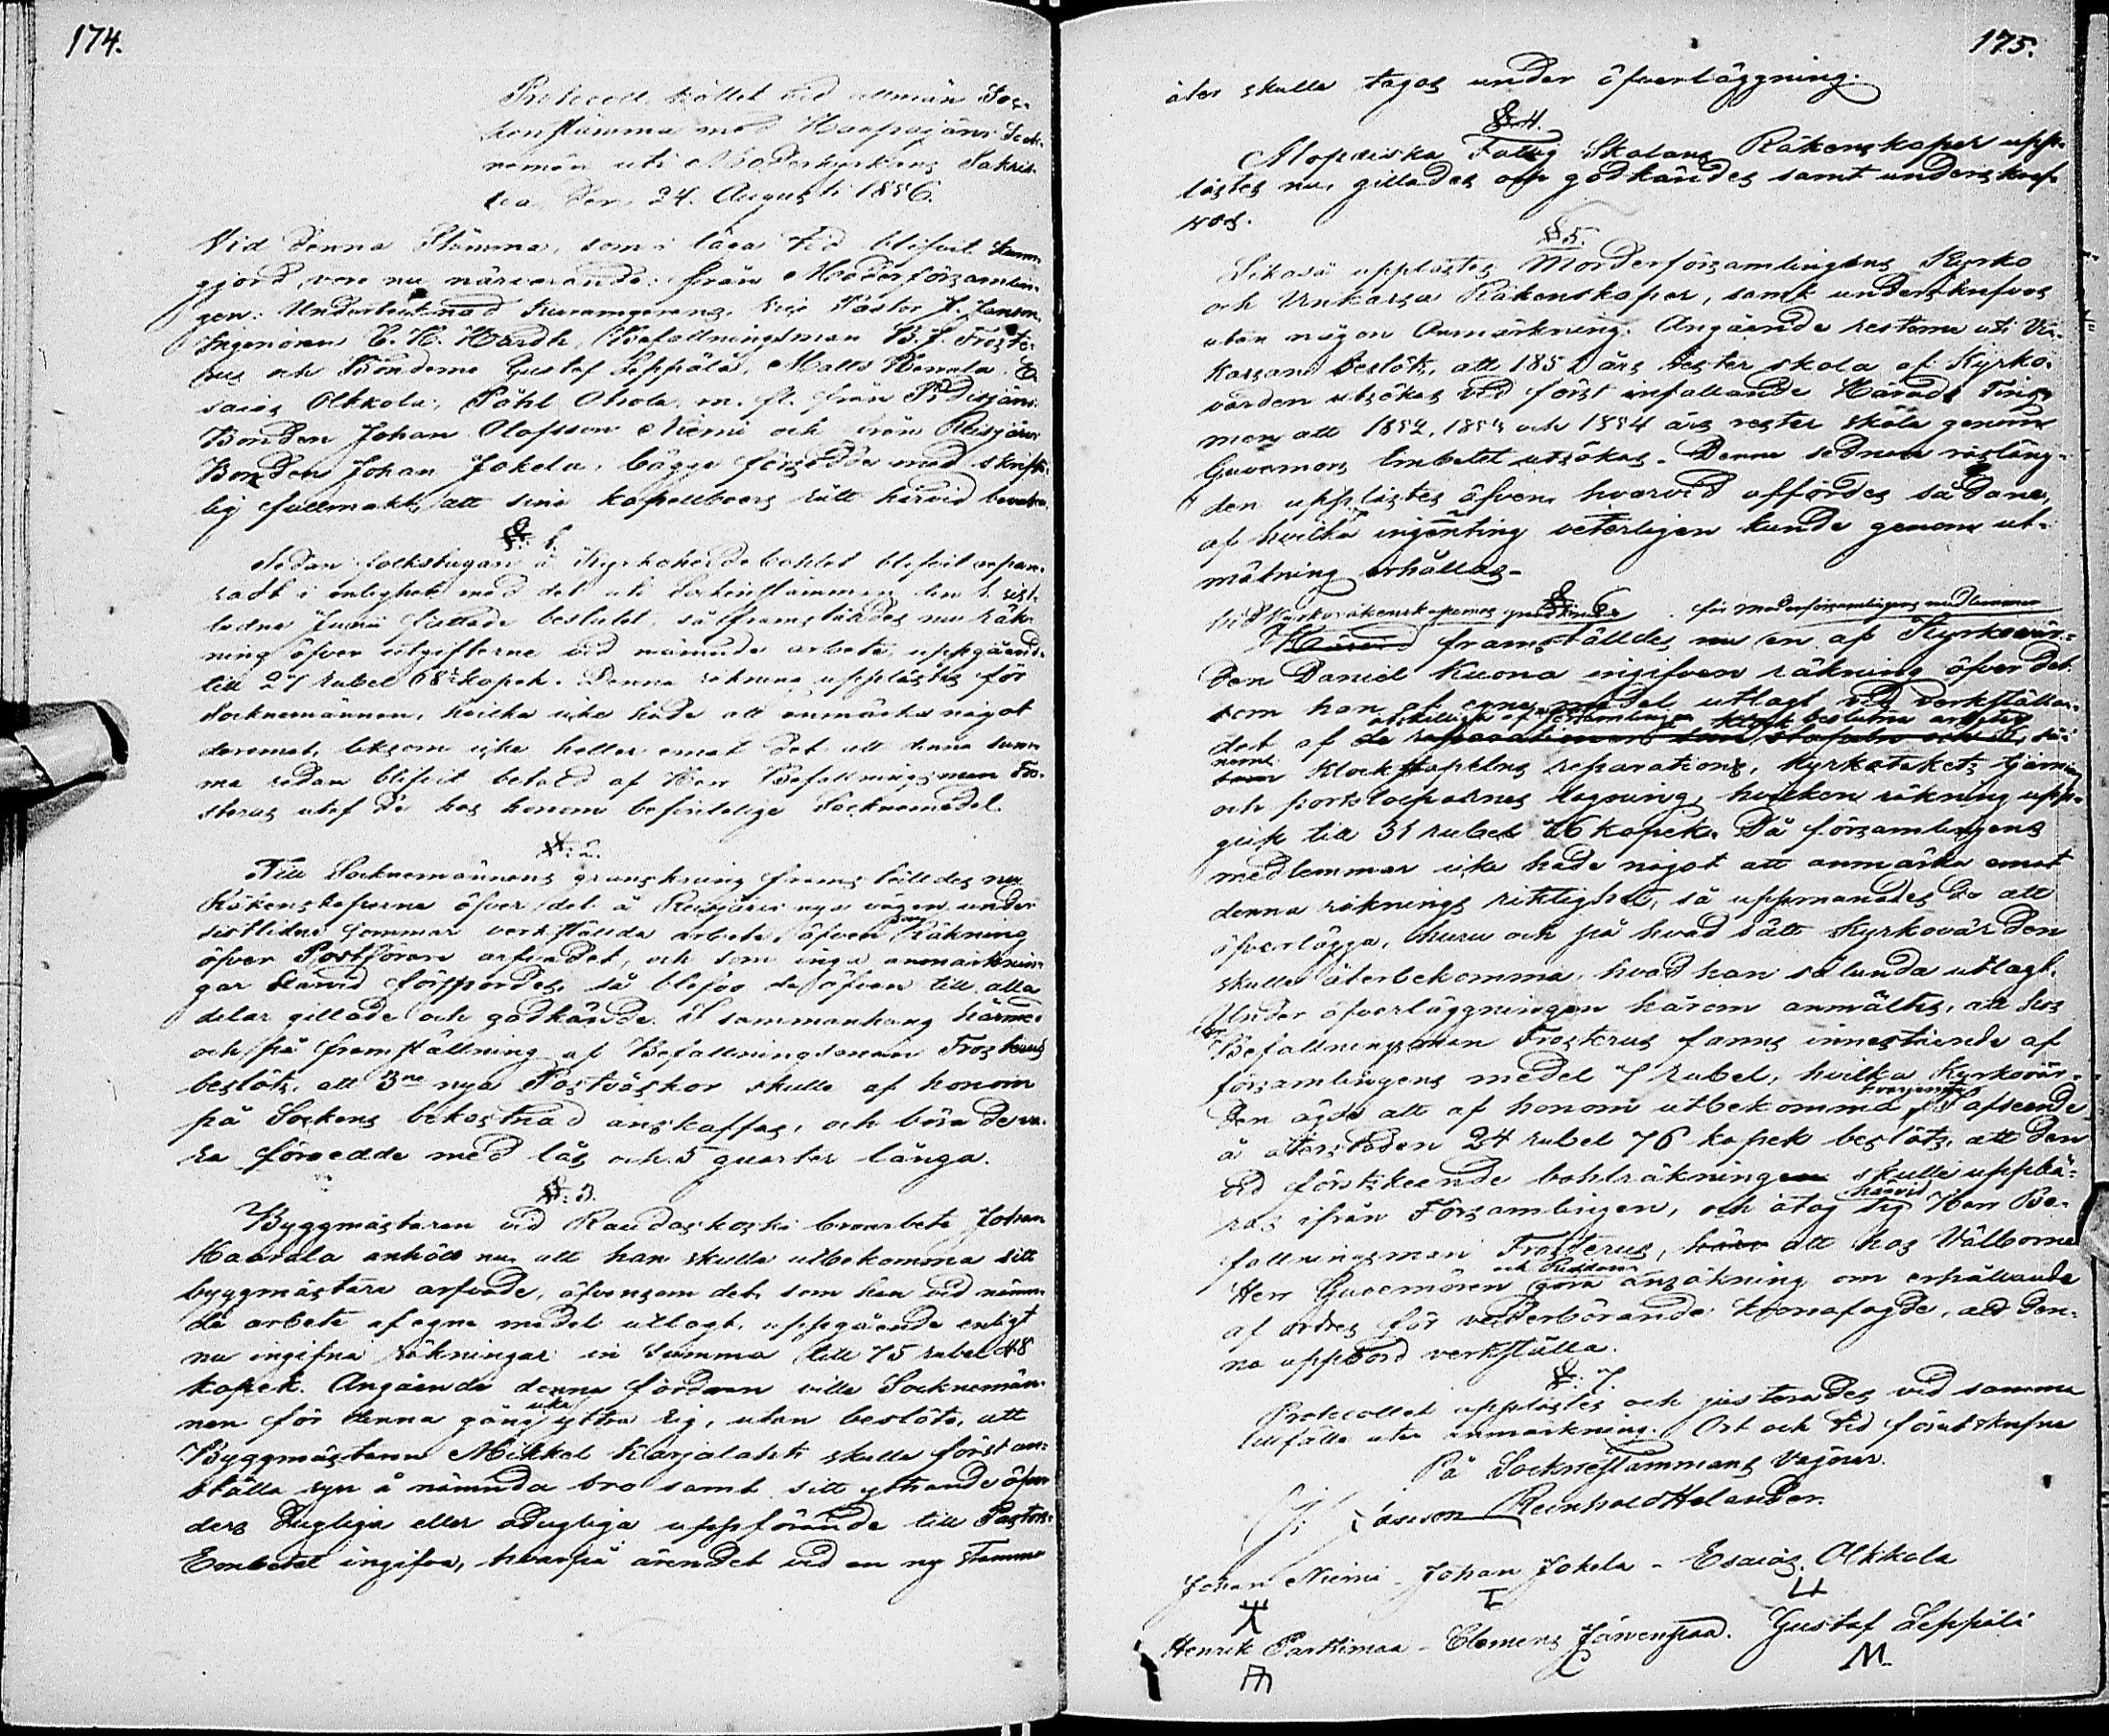 174.
Protocoll hållet vid allmän Soc-
kenstämma med Haapajärvi Sock-
nemän uti Moderkyrkans Sakris-
tia den 24. Augusti 1856.
Vid denna Stämma, som i laga tid blifvit kun-
gjord, vore nu närvarande: från Moderförsamlin-
gen: Undertecknad Pastor J. Janson,
Ingeniören C. H. Hårdh, Befallningsman B. J. Froste-
rus och Bönderne Gustaf Seppälä, Matts E-
saias Olkkola, Påhl Ohola, m. fl. från Pidisjärvi
Bonden Johan Olofsson Niemi och från Reisjärvi
Bonden Johan Jokela, bägge försedde med skrift-
lig fullmakt, att sine kapellboers rätt härvid bevaka.
§. 1.
Sedan folkstugan å Kyrkoherdebohlet blifvit repa-
radt i enlighet med det uti Sockenstämman den 1. sist-
ledne Junii fattade beslutet, så framställdes nu räk-
ning öfver utgifterne vid nämnde arbete, uppgående
till 27 rubel 68 kopek. Denna räkning upplästes för
Socknemännen, hvilka icke hade att anmärka något
deremot, liksom icke heller emot det att denna sum-
ma redan blifvit betald af Herr Befallningsman Fro-
sterus utaf de hos honom befintelige Socknemedel.
§. 2.
Till Socknemännens granskning framställdes nu
Räkenskaperna öfver det å Reisjärvi nya vägen under
sistlidne sommar verkställda arbete, äfven Räkning
öfver Postförare arfvodet, och som inga anmärknin-
gar härvid förspordes, så blefvo de äfven till alla
delar gillade och godkände. I sammanhang härmed
och på framställning af Befallningsman Frosterus
beslöts, att 3ne nya Postväskor skulle af honom
på Sockens bekostnad anskaffas, och böra de va-
ra försedde med lås och 5 quarter långa.
§. 3.
Byggmästaren vid Raudaskoski broarbete Johan
Haarala anhöll nu, att han skulle utbekomma sitt
byggmästare arfvode, äfvensom det, som han vid nämn-
da arbete af egna medel utlagt, uppgående enligt
nu ingifna räkningar in summa till 75 rubel 48
kopek. Angående denna fordran ville Socknemän-
nen för denna gång icke yttra sig, utan beslöto, att
Byggmästaren Mikkel Karjalahti skulle först an-
ställa syn å nämnda bro samt sitt yttrande öfver
ders dugliga eller odugliga uppförande till Pastors
Embetet ingifva, hvarpå ärendet vid en ny Stämma
175.
åter skulle tagas under öfverläggning.
§. 4.
Alopaiska Fattig Skolans Räkenskaper upp-
lästes nu, gillades och godkändes samt underskref-
vos.
§ 5.
Likaså upplästes Moderförsamlingens Kyrko
och Vinkassa Räkenskaper, samt underskrefvos
utan någon Anmärkning. Angående resterne uti Vin-
kassan beslöts, att 1851 års rester skola af Kyrko-
värden utsökas vid först infallande Härads Ting,
men att 1852, 1853 och 1854 års rester skola genom
Guvernörs Embetet utsökas. Denna sednare restläng-
den upplästes äfven, hvarvid affördes sådane,
af hvilka ingenting veterligen kunde genom ut-
mätning erhållas.
§ 6
Vid Kyrkoräkenskapernas granskning för moderförsamlingens medlemmar
Härvid framställdes nu en af Kyrkovär-
den Daniel Kuona ingifven räkning öfver det,
som han af egna medel utlagt vid verkställan-
åtskilliga af församlingen beslutna arbeten
det af de reparationer, så-
som Klockstapelns reparations, Kyrkotakets tjärning
och portstolparnes lagning, hvilken räkning upp-
gick till 31 rubel 76 kopek. Då församlingens
medlemmar icke hade något att anmärka emot
denna räknings riktighet, så uppmanades de att
öfverlägga, huru och på hvad sätt Kyrkovärden
skulle återbekomma, hvad han sålunda utlagt.
Under öfverläggningen härom anmältes, att hos
Herr Befallningsman Frosterus fanns innestående af
församlingens medel 7 rubel, hvilka Kyrkovär-
den ägde att af honom utbekomma, hvarjemte I afseende
å återstoden 24 rubel 76 kopek beslöts, att den
vid förstskeende bohlräkningen skulle uppbä-
ras ifrån Församlingen, och åtog sig härvid Herr Be-
fallningsman Frosterus, att hos Välborne
Herr Guvernören och Riddaren göra ansökning om erhållande
af ordres för vederbörande Kronofogde, att den-
na uppbörd verkställa.
§. 7.
Protocollet upplästes och justerades vid samma
tillfälle utan anmärkning. Ort och tid förutskrefne
På Socknestämmans Vägnar.
J. Janson Reinhold Helander.
Johan Niemi - Johan Jokela - Esaias Olkkola
Henrik Parkkimaa - Clemens Järvenpää. Gustaf Seppälä